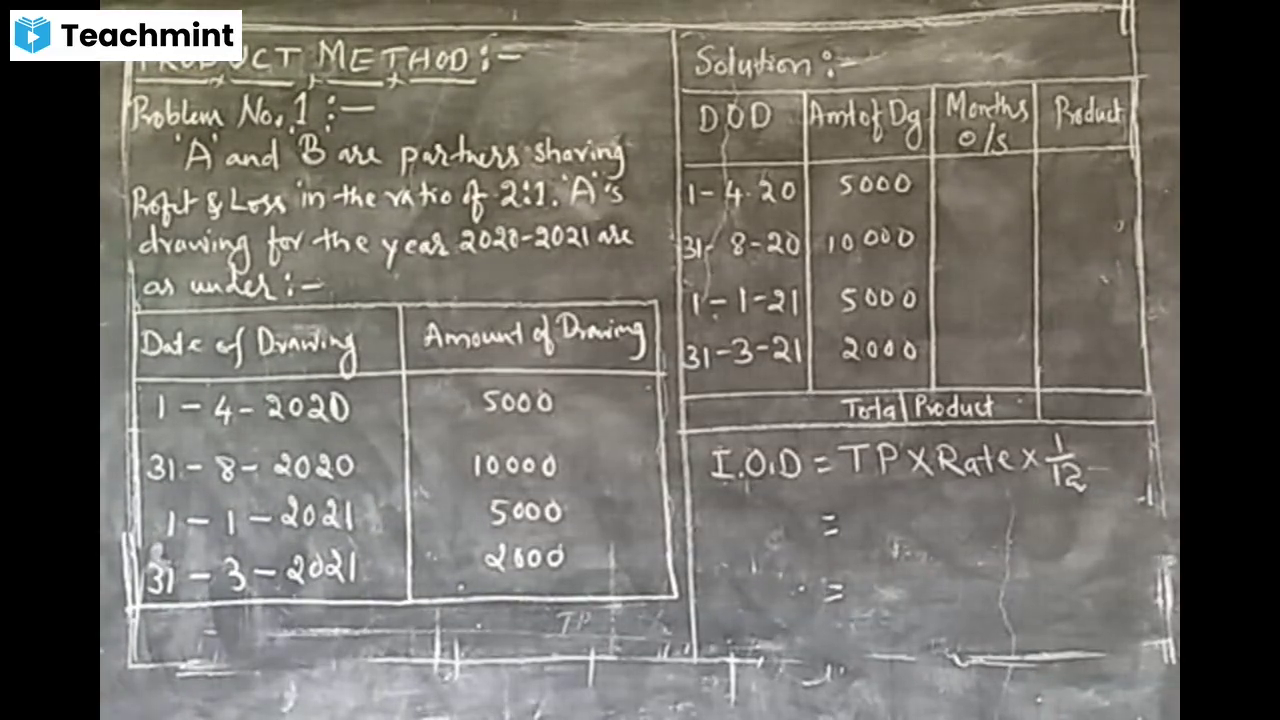 Teachmint
PRODUCT METHOD :-
Problem No. 1 :-
'A' and B are partners sharing
Profit & Loss in the ratio of 2:1. 'A's
drawing for the year 2020-2021 are
as under :-
Date of Drawing Amount of Drawing
1 - 4 - 2020 5000
31 - 8 - 2020 10000
1 - 1 - 2021 5000
31 - 3 - 2021 2000
TP
Solution :-
D O D Amt of Dg Months o/s Product
1 - 4 - 20 5000
31 - 8 - 20 10000
1 - 1 - 21 5000
31 - 3 - 21 2000
Total Product
I.O.D = TP X Rate x 1/12
=
=